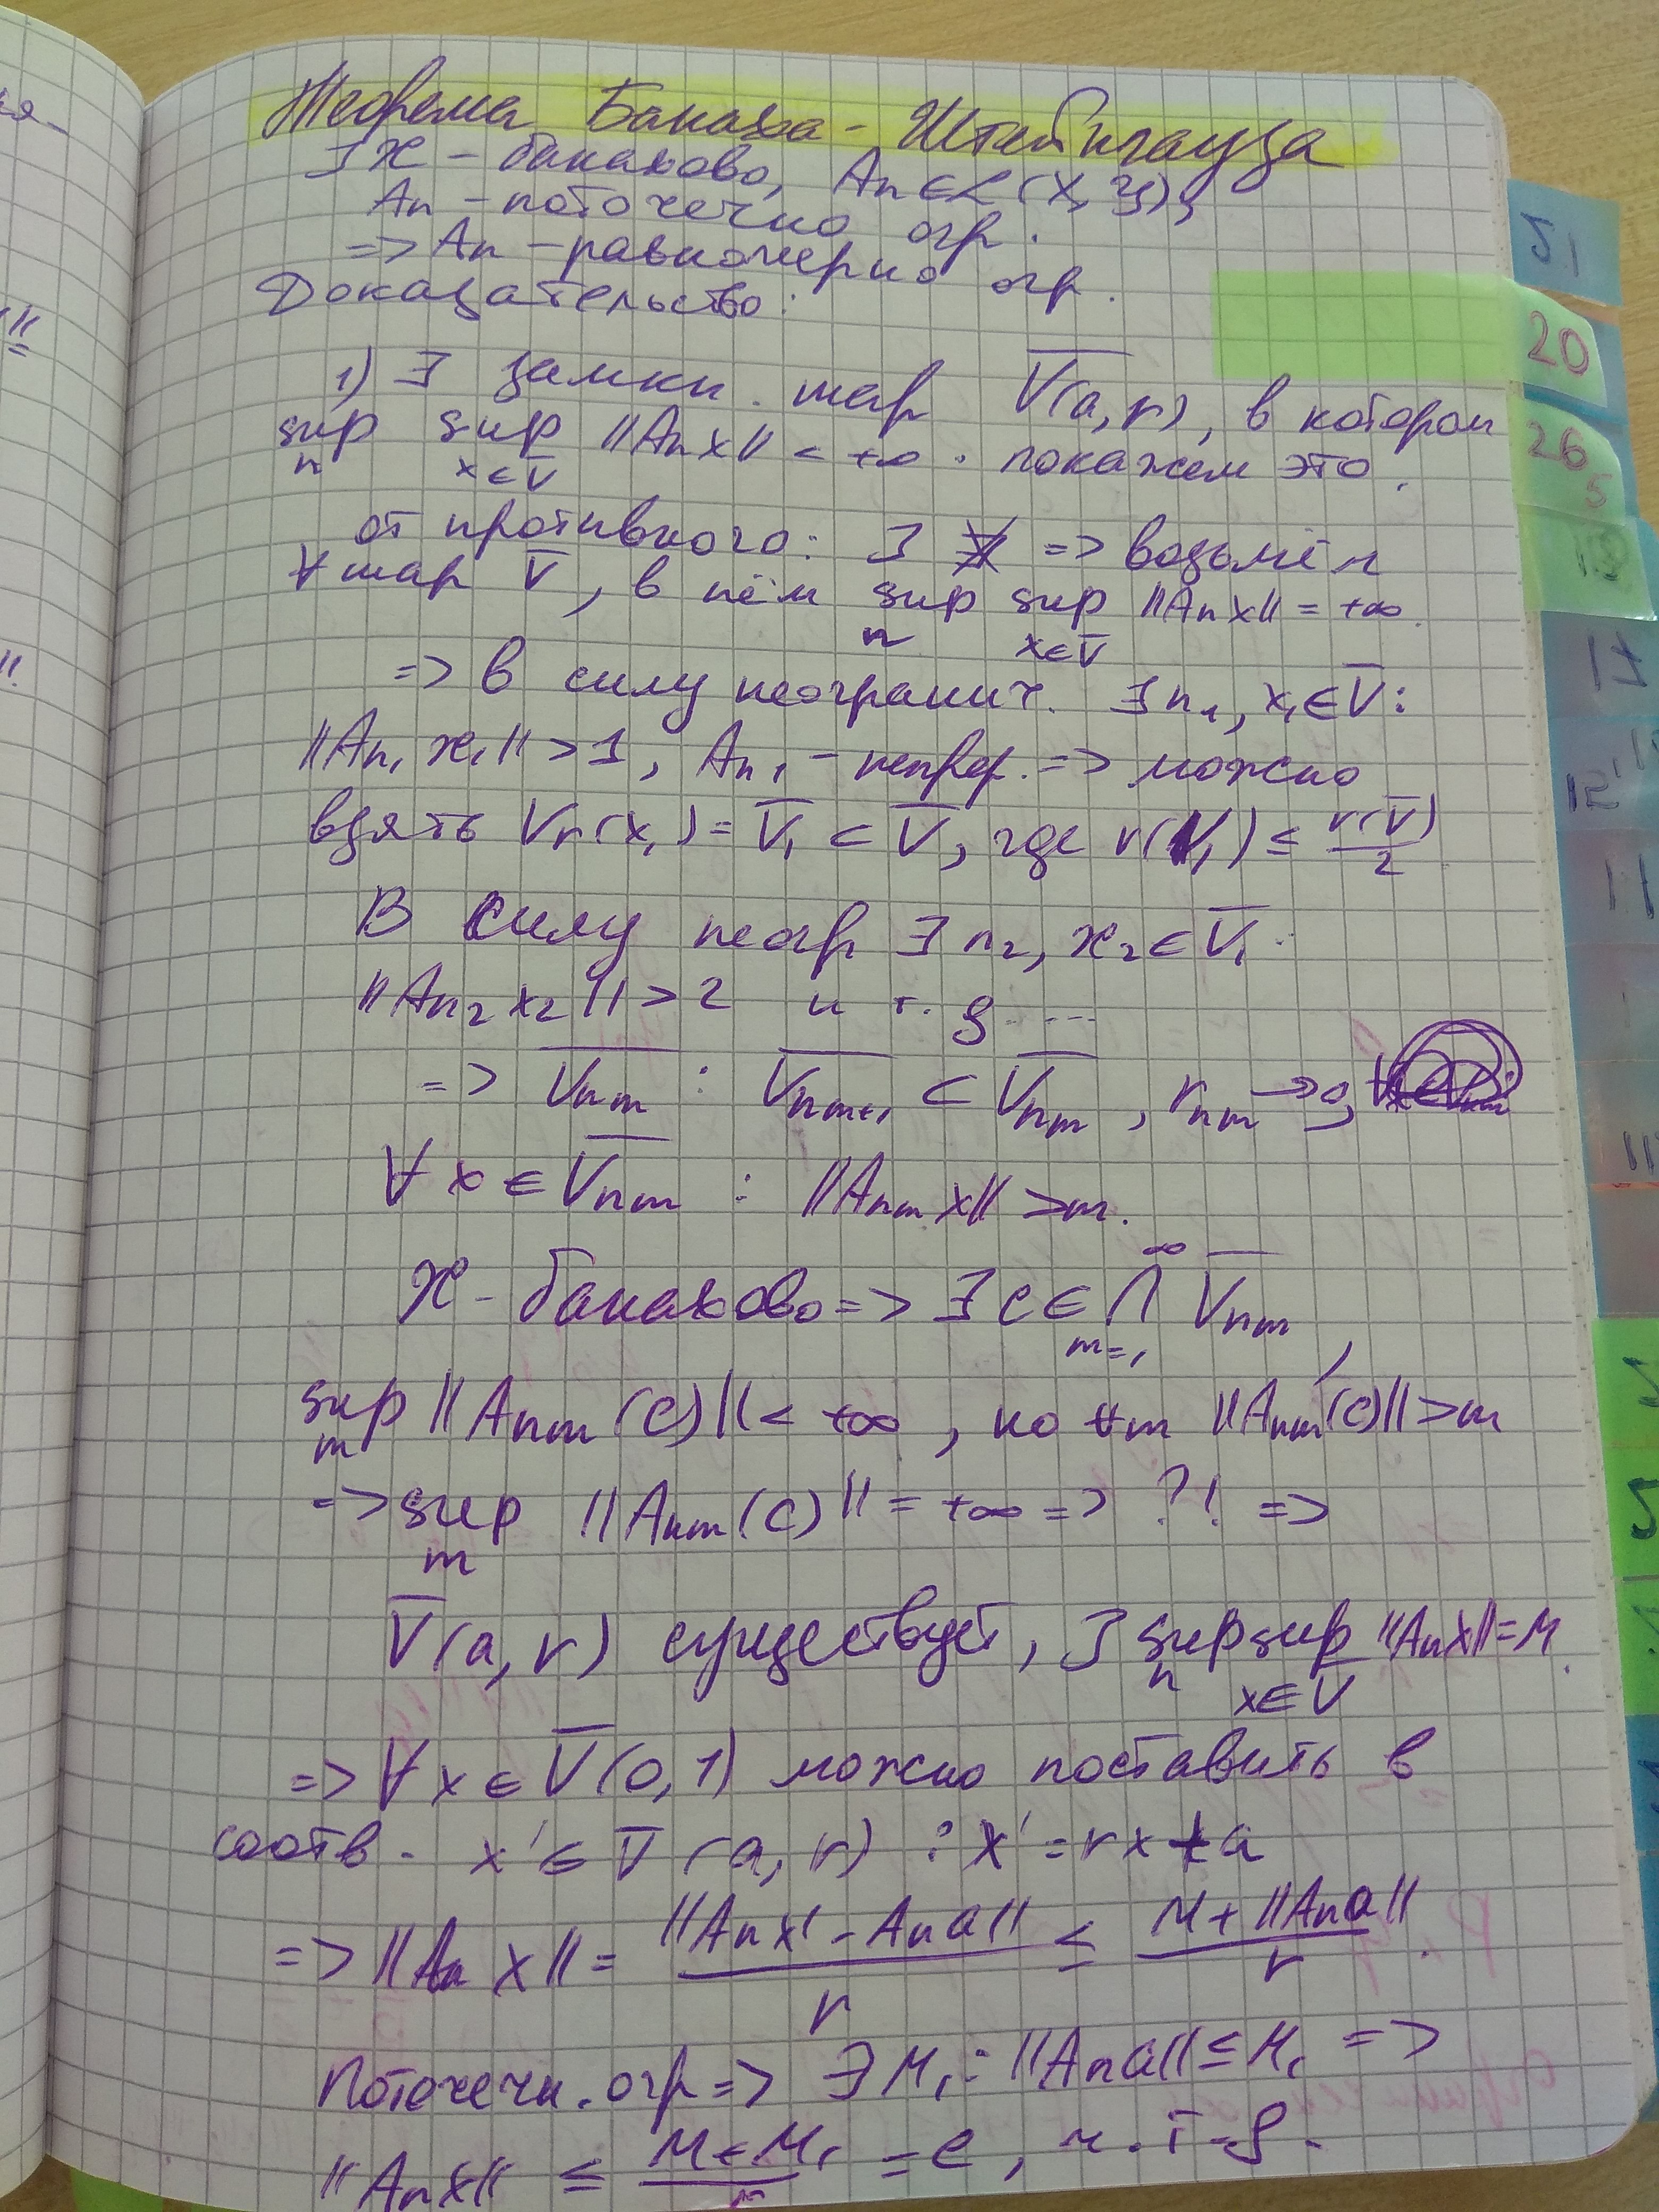 Теорема Банаха - Штейнгауза
] X - банахово, An ∈ L(X, Y),
An - поточечно огр.
=> An - равномерно огр.
Доказательство:
1) ∃ замкн. шар V̅(a, r), в котором
sup_n sup_{x∈V̅} ||An x|| < +∞. покажем это.
от противного: ] ∄ => возьмём
∀ шар V̅, в нём sup_n sup_{x∈V̅} ||An x|| = +∞.
=> в силу неогранич. ∃ n₁, x₁ ∈ V̅:
||An₁ x₁|| > 1, An₁ - непрер. => можно
взять Vr(x₁) = V̅₁ ⊂ V̅, где r(V₁) ≤ r(V̅)/2
В силу неогр ∃ n₂, x₂ ∈ V̅₁:
||An₂ x₂|| > 2 и т. д. ...
=> V̅nm : V̅nm+1 ⊂ V̅nm, rnm → 0,
∀ x ∈ V̅nm : ||Anm x|| > m.
X - банахово => ∃ c ∈ ∩_{m=1}^∞ V̅nm,
sup_m ||Anm(c)|| < +∞, но ∀m ||Anm(c)|| > m
=> sup_m ||Anm(c)|| = +∞ => ?! =>
V̅(a, r) существует, ] sup_n sup_{x∈V̅} ||An x|| = M.
=> ∀ x ∈ V̅(0, 1) можно поставить в
соотв. x' ∈ V̅(a, r) : x' = rx + a
=> ||An x|| = ||An x' - An a|| / r ≤ (M + ||An a||) / r.
Поточечн. огр => ∃ M₁ : ||An a|| ≤ M₁ =>
||An x|| ≤ (M + M₁) / r = c, ч. т. д.
51
20
26
5
17
12
11
11
5
5